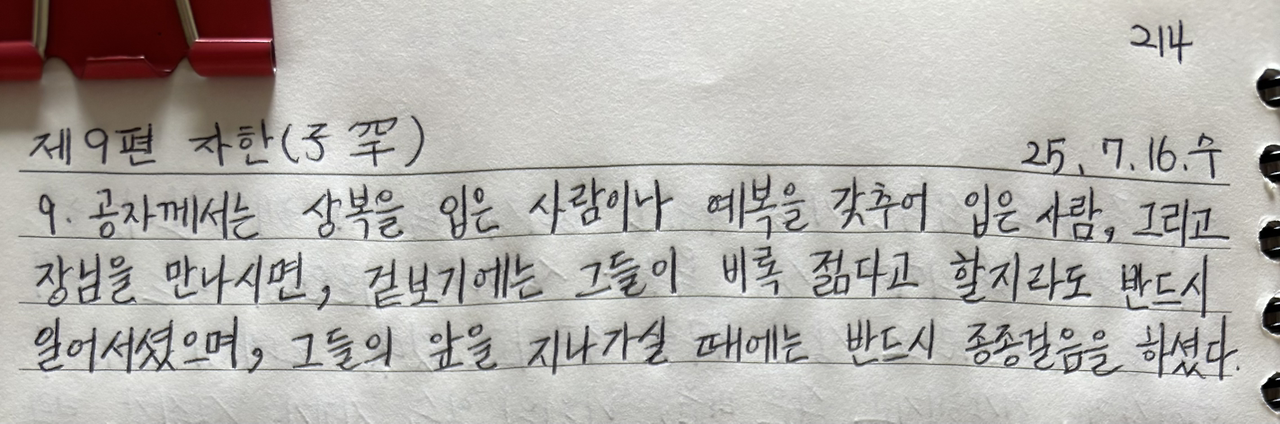 214
제9편 자한(子罕)
25. 7. 16. 수
9. 공자께서는 상복을 입은 사람이나 예복을 갖추어 입은 사람, 그리고
장님을 만나시면, 겉보기에는 그들이 비록 젊다고 할지라도 반드시
일어서셨으며, 그들의 앞을 지나가실 때에는 반드시 종종걸음을 하셨다.